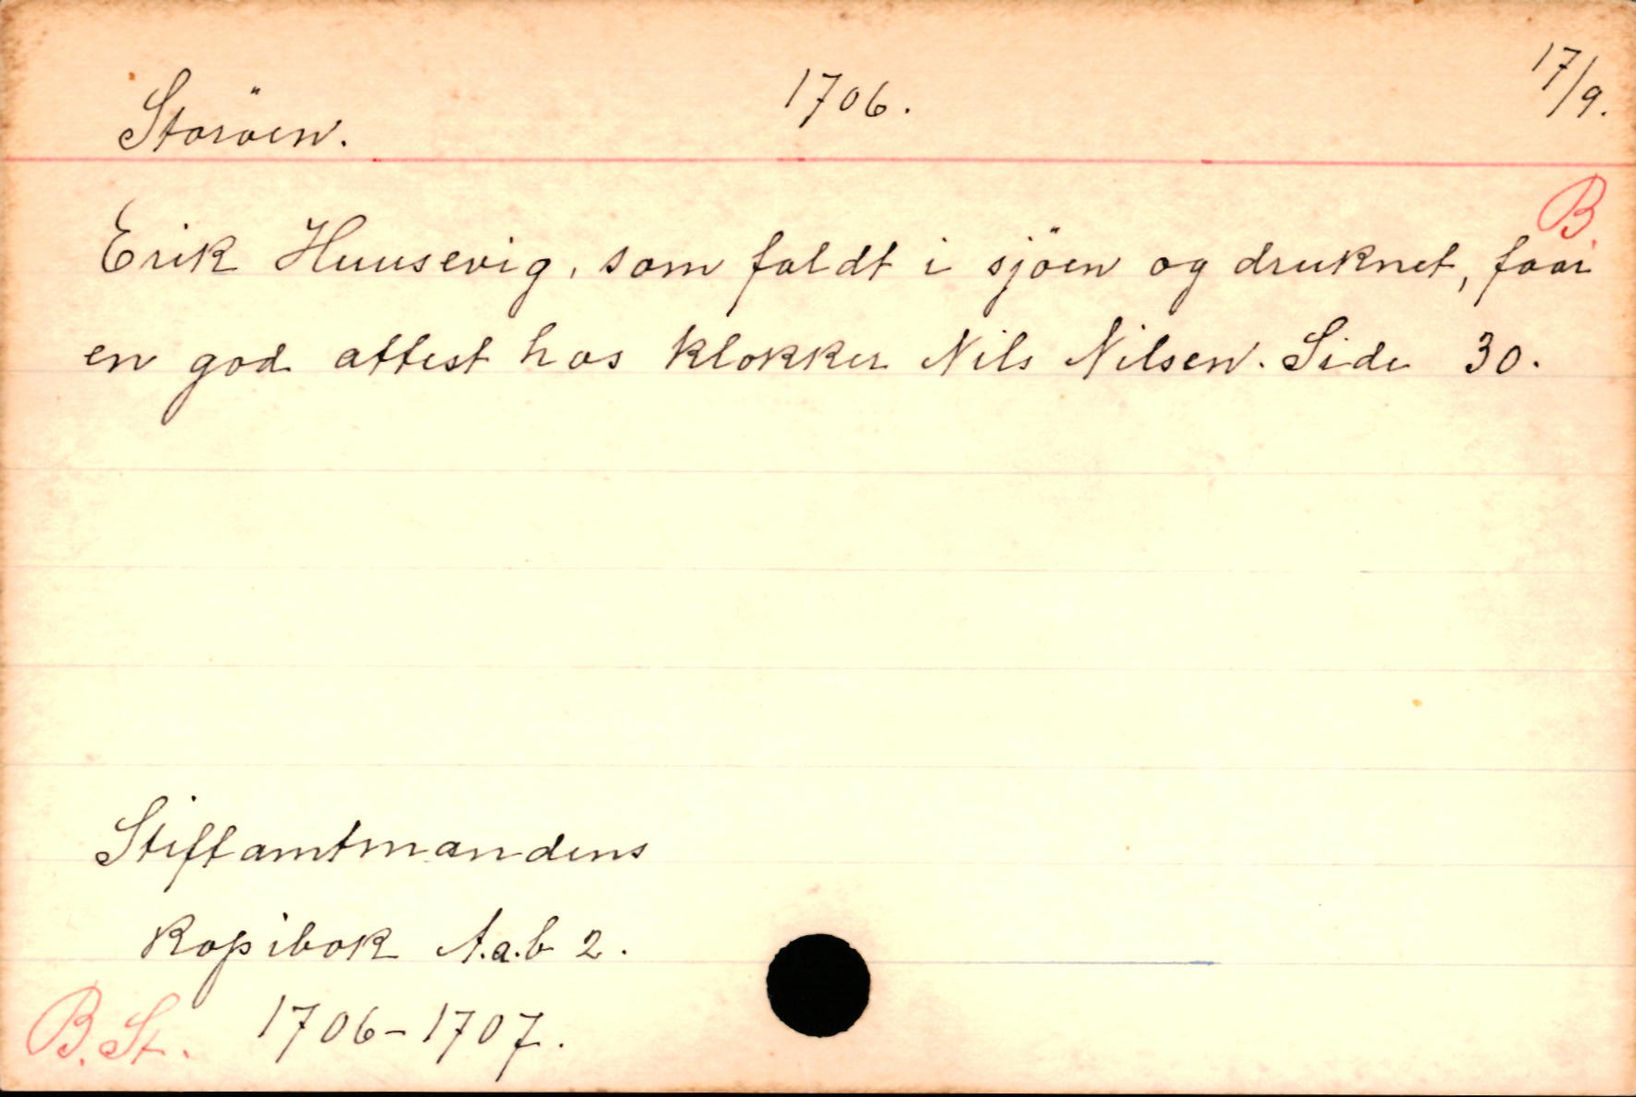 Storöen. 1706. 17/9.
B.
Erik Huusevig, som faldt i sjöen og druknet, faar
en god attest hos klokker Nils Nilsen. Side 30.
Stiftamtmandens
Kopibok A.a.b 2.
B. St. 1706-1707.